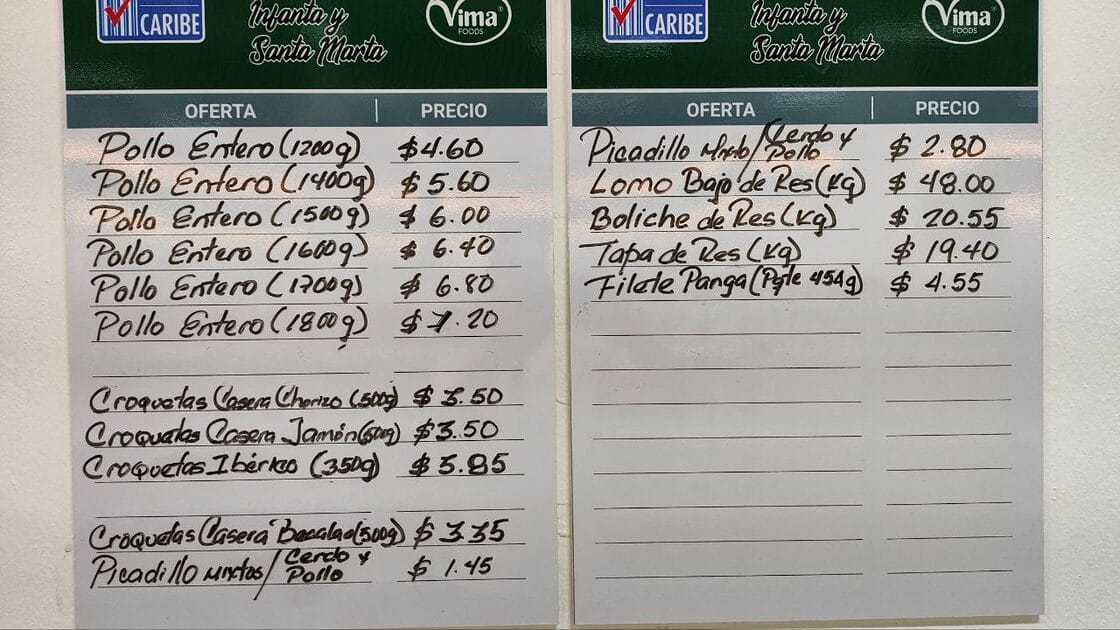 CARIBE
Infanta y
Santa Marta
Vima
FOODS
OFERTA PRECIO
Pollo Entero (1200g) $4.60
Pollo Entero (1400g) $5.60
Pollo Entero (1500g) $6.00
Pollo Entero (1600g) $6.40
Pollo Entero (1700g) $6.80
Pollo Entero (1800g) $7.20
Croquetas Casera Chorizo (500g) $3.50
Croquetas Casera Jamón (500g) $3.50
Croquetas Ibérico (350g) $3.85
Croquetas Casera Bacalao (500g) $3.35
Picadillo Mixtos / Cerdo y
Pollo $1.45
CARIBE
Infanta y
Santa Marta
Vima
FOODS
OFERTA PRECIO
Picadillo Mixto / Cerdo y
Pollo $2.80
Lomo Bajo de Res (Kg) $48.00
Boliche de Res (Kg) $20.55
Tapa de Res (Kg) $19.40
Filete Panga (Pqte 454g) $4.55